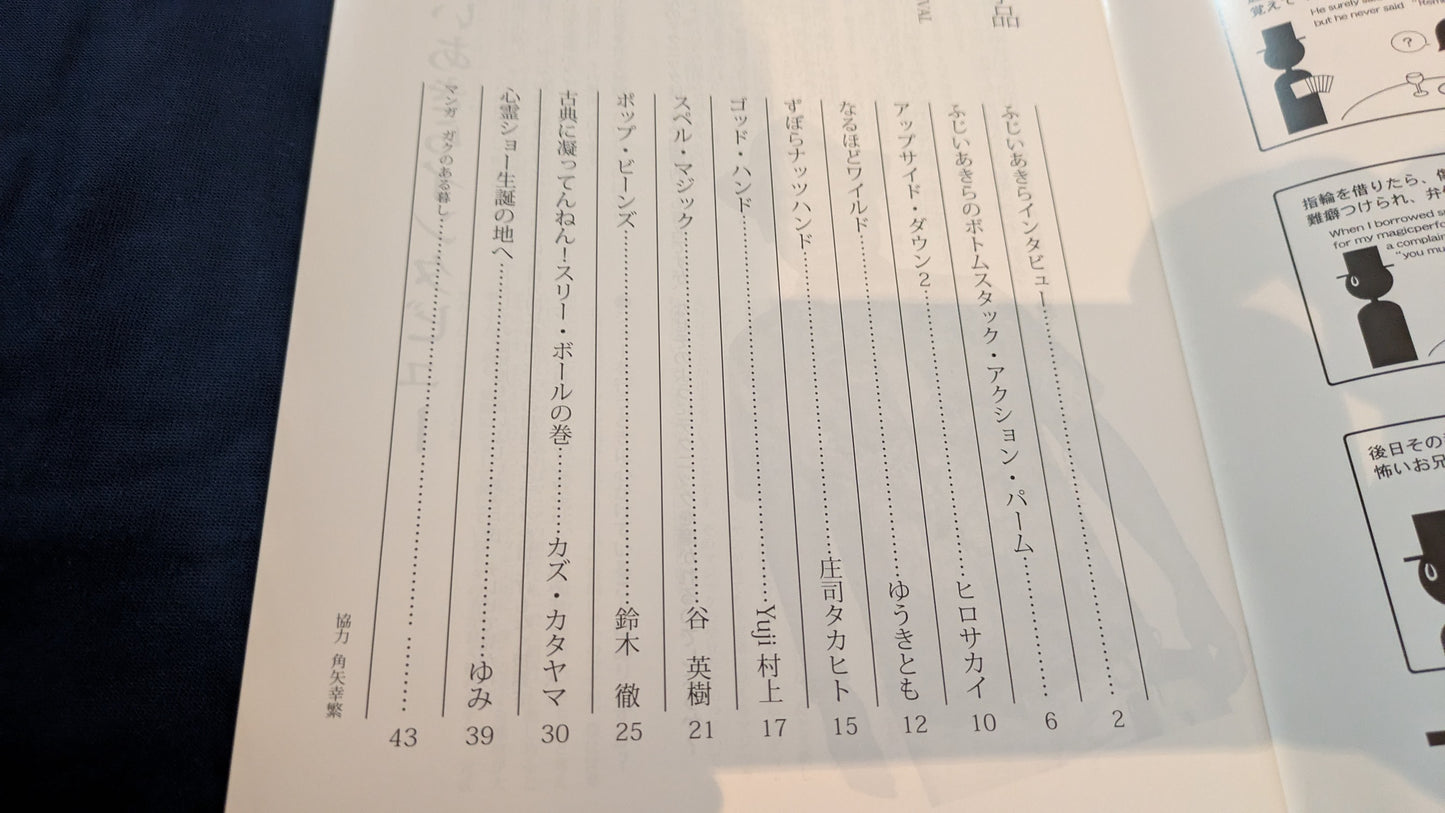 覚えて
He surely
but he never said
?
指輪を借りたら、
難癖つけられ、弁
When I borrowed
for my magicperfo
a complain
"you mu
後日その
怖いお兄
品
VAL
ふじいあきらインタビュー 2
ふじいあきらのボトムスタック・アクション・パーム 6
アップサイド・ダウン2 ヒロサカイ 10
なるほどワイルド ゆうきとも 12
ずぼらナッツハンド 庄司タカヒト 15
ゴッド・ハンド Yuji 村上 17
スペル・マジック 谷 英樹 21
ポップ・ビーンズ 鈴木 徹 25
古典に凝ってんねん!スリー・ボールの巻 カズ・カタヤマ 30
心霊ショー生誕の地へ ゆみ 39
マンガ ガクのある暮し 43
協力 角矢幸繁